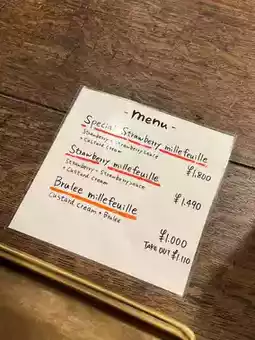 - menu -
Special Strawberry millefeuille
Strawberry + Strawberry sauce
+ Custard cream
¥1,800
Strawberry millefeuille
Strawberry + Strawberry sauce
+ Custard cream
¥1,490
Brulee millefeuille
Custard cream + Brulee
¥1,000
TAKE OUT ¥1,110